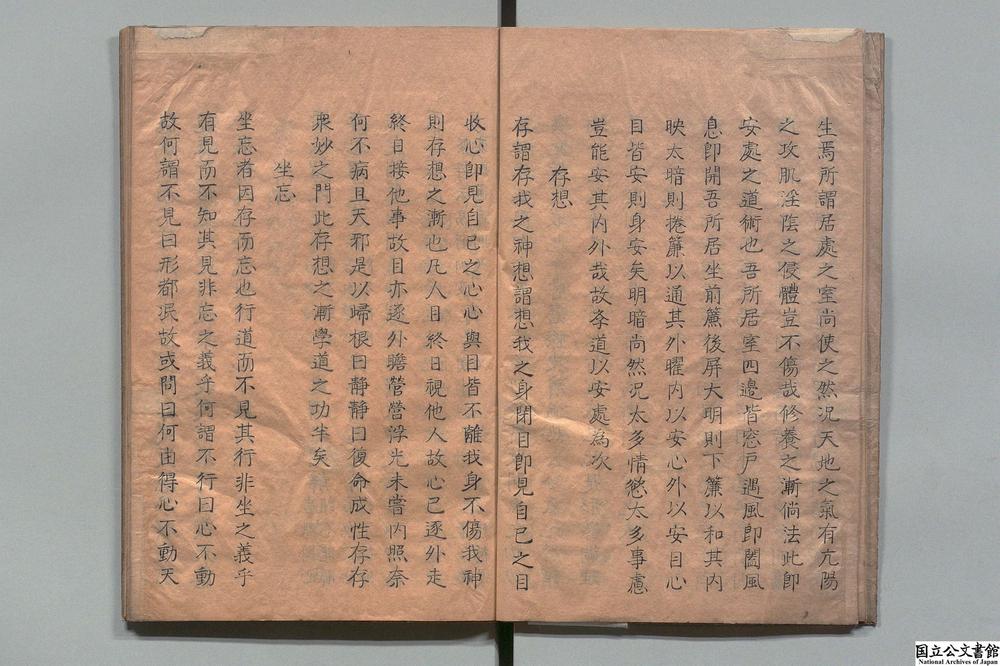 生焉所謂居處之室尚使之然況天地之氣有亢陽
之攻肌淫陰之侵體豈不傷哉修養之漸倘法此卽
安處之道術也吾所居室四邊皆窓戶遇風卽闔風
息卽開吾所居坐前簾後屏大明則下簾以和其內
映太暗則捲簾以通其外曜內以安心外以安目心
目皆安則身安矣明暗尚然況太多情慾太多事慮
豈能安其內外哉故孝道以安處為次
存想
存謂存我之神想謂想我之身閉目卽見自己之目
收心卽見自己之心心與目皆不離我身不傷我神
則存想之漸也凡人目終日視他人故心已逐外走
終日接他事故目亦逐外瞻營營浮光未嘗內照奈
何不病且夭邪是以歸根曰靜靜曰復命成性存存
衆妙之門此存想之漸學道之功半矣
坐忘
坐忘者因存而忘也行道而不見其行非坐之義乎
有見而不知其見非忘之義乎何謂不行曰心不動
故何謂不見曰形都泯故或問曰何由得心不動天
国立公文書館
National Archives of Japan